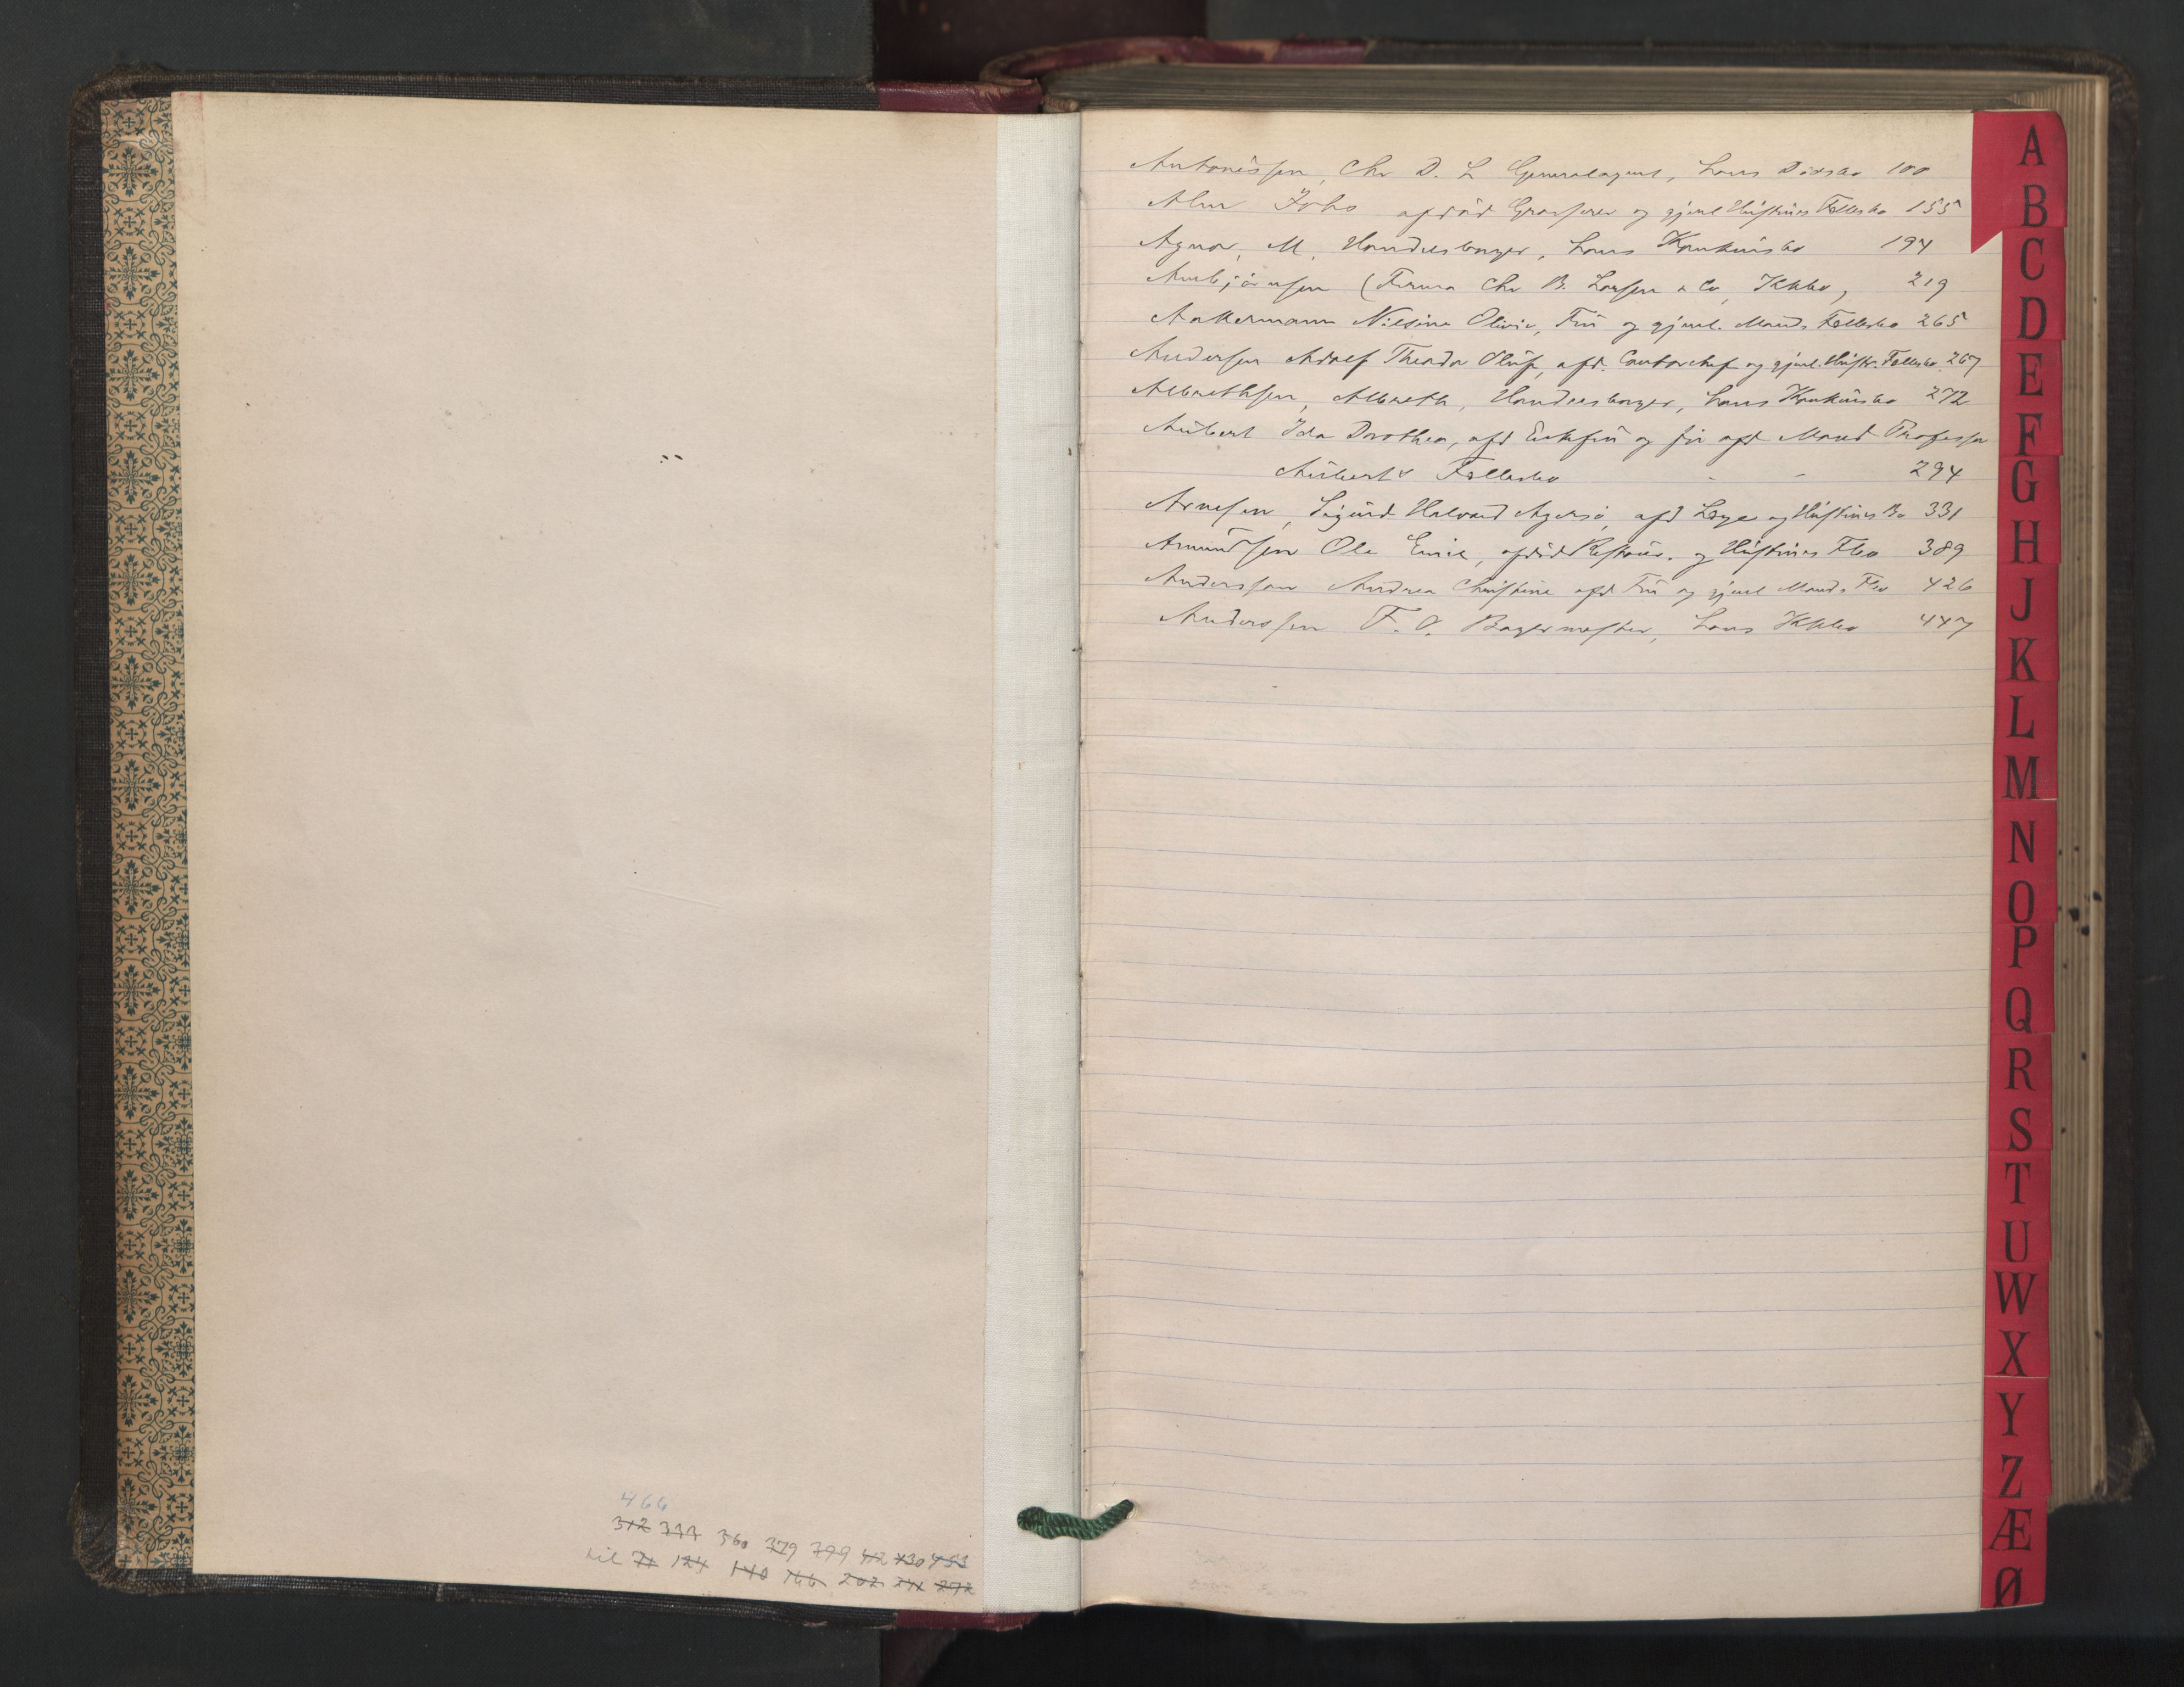 466
312 333 360 379 399 412 430 453
til 71 124 140 166 202 241 292
Antonissen, Chr D. L Generalagent, hans Dødsbo 100
Alm Johs afdød Grosserer og gjenl Hustrues Fællesbo 155
Agnor, M, Handelsborger, hans Konkursbo 194
Arnbjørnsen (Firma Chr B. Larsen & Co, Kkbo) 219
Aakermann Nilsine Olivie, Fru og gjenl. Mands Fællesbo 265
Andersen Adolf Theodor Oluf, afd. Contorchef og gjenl. Hustr. Fællesbo 267
Albrethsen, Albreth, Handelsborger, hans Konkursbo 272
Aubert Ida Dorothea, afd Enkefru og før afd Mand Professor
Auberts Fællesbo - - 294
Arnesen, Sigurd Halvard Agersø, afd Læge og Hustrues Bo 331
Amundsen Ole Emil, afdød Restaur. og Hustrues Fbo 389
Anderssen Andrea Christine afd Fru og gjenl Mands Fbo 426
Anderssen F. O. Bagermester, hans Kkbo 447
A
B
C
D
E
F
G
H
J
K
L
M
N
O
P
Q
R
S
T
U
W
X
Y
Z
Æ
Ø